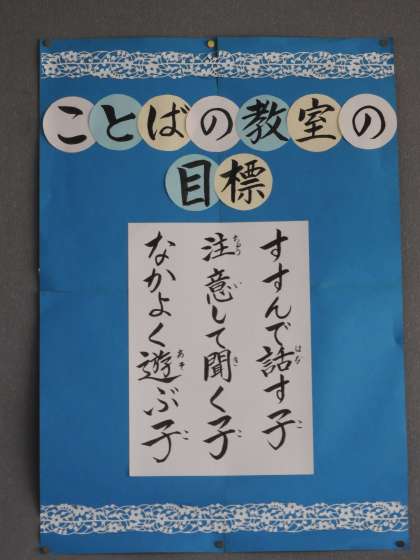 ことばの教室の
目標
すすんで話す子
注意して聞く子
なかよく遊ぶ子